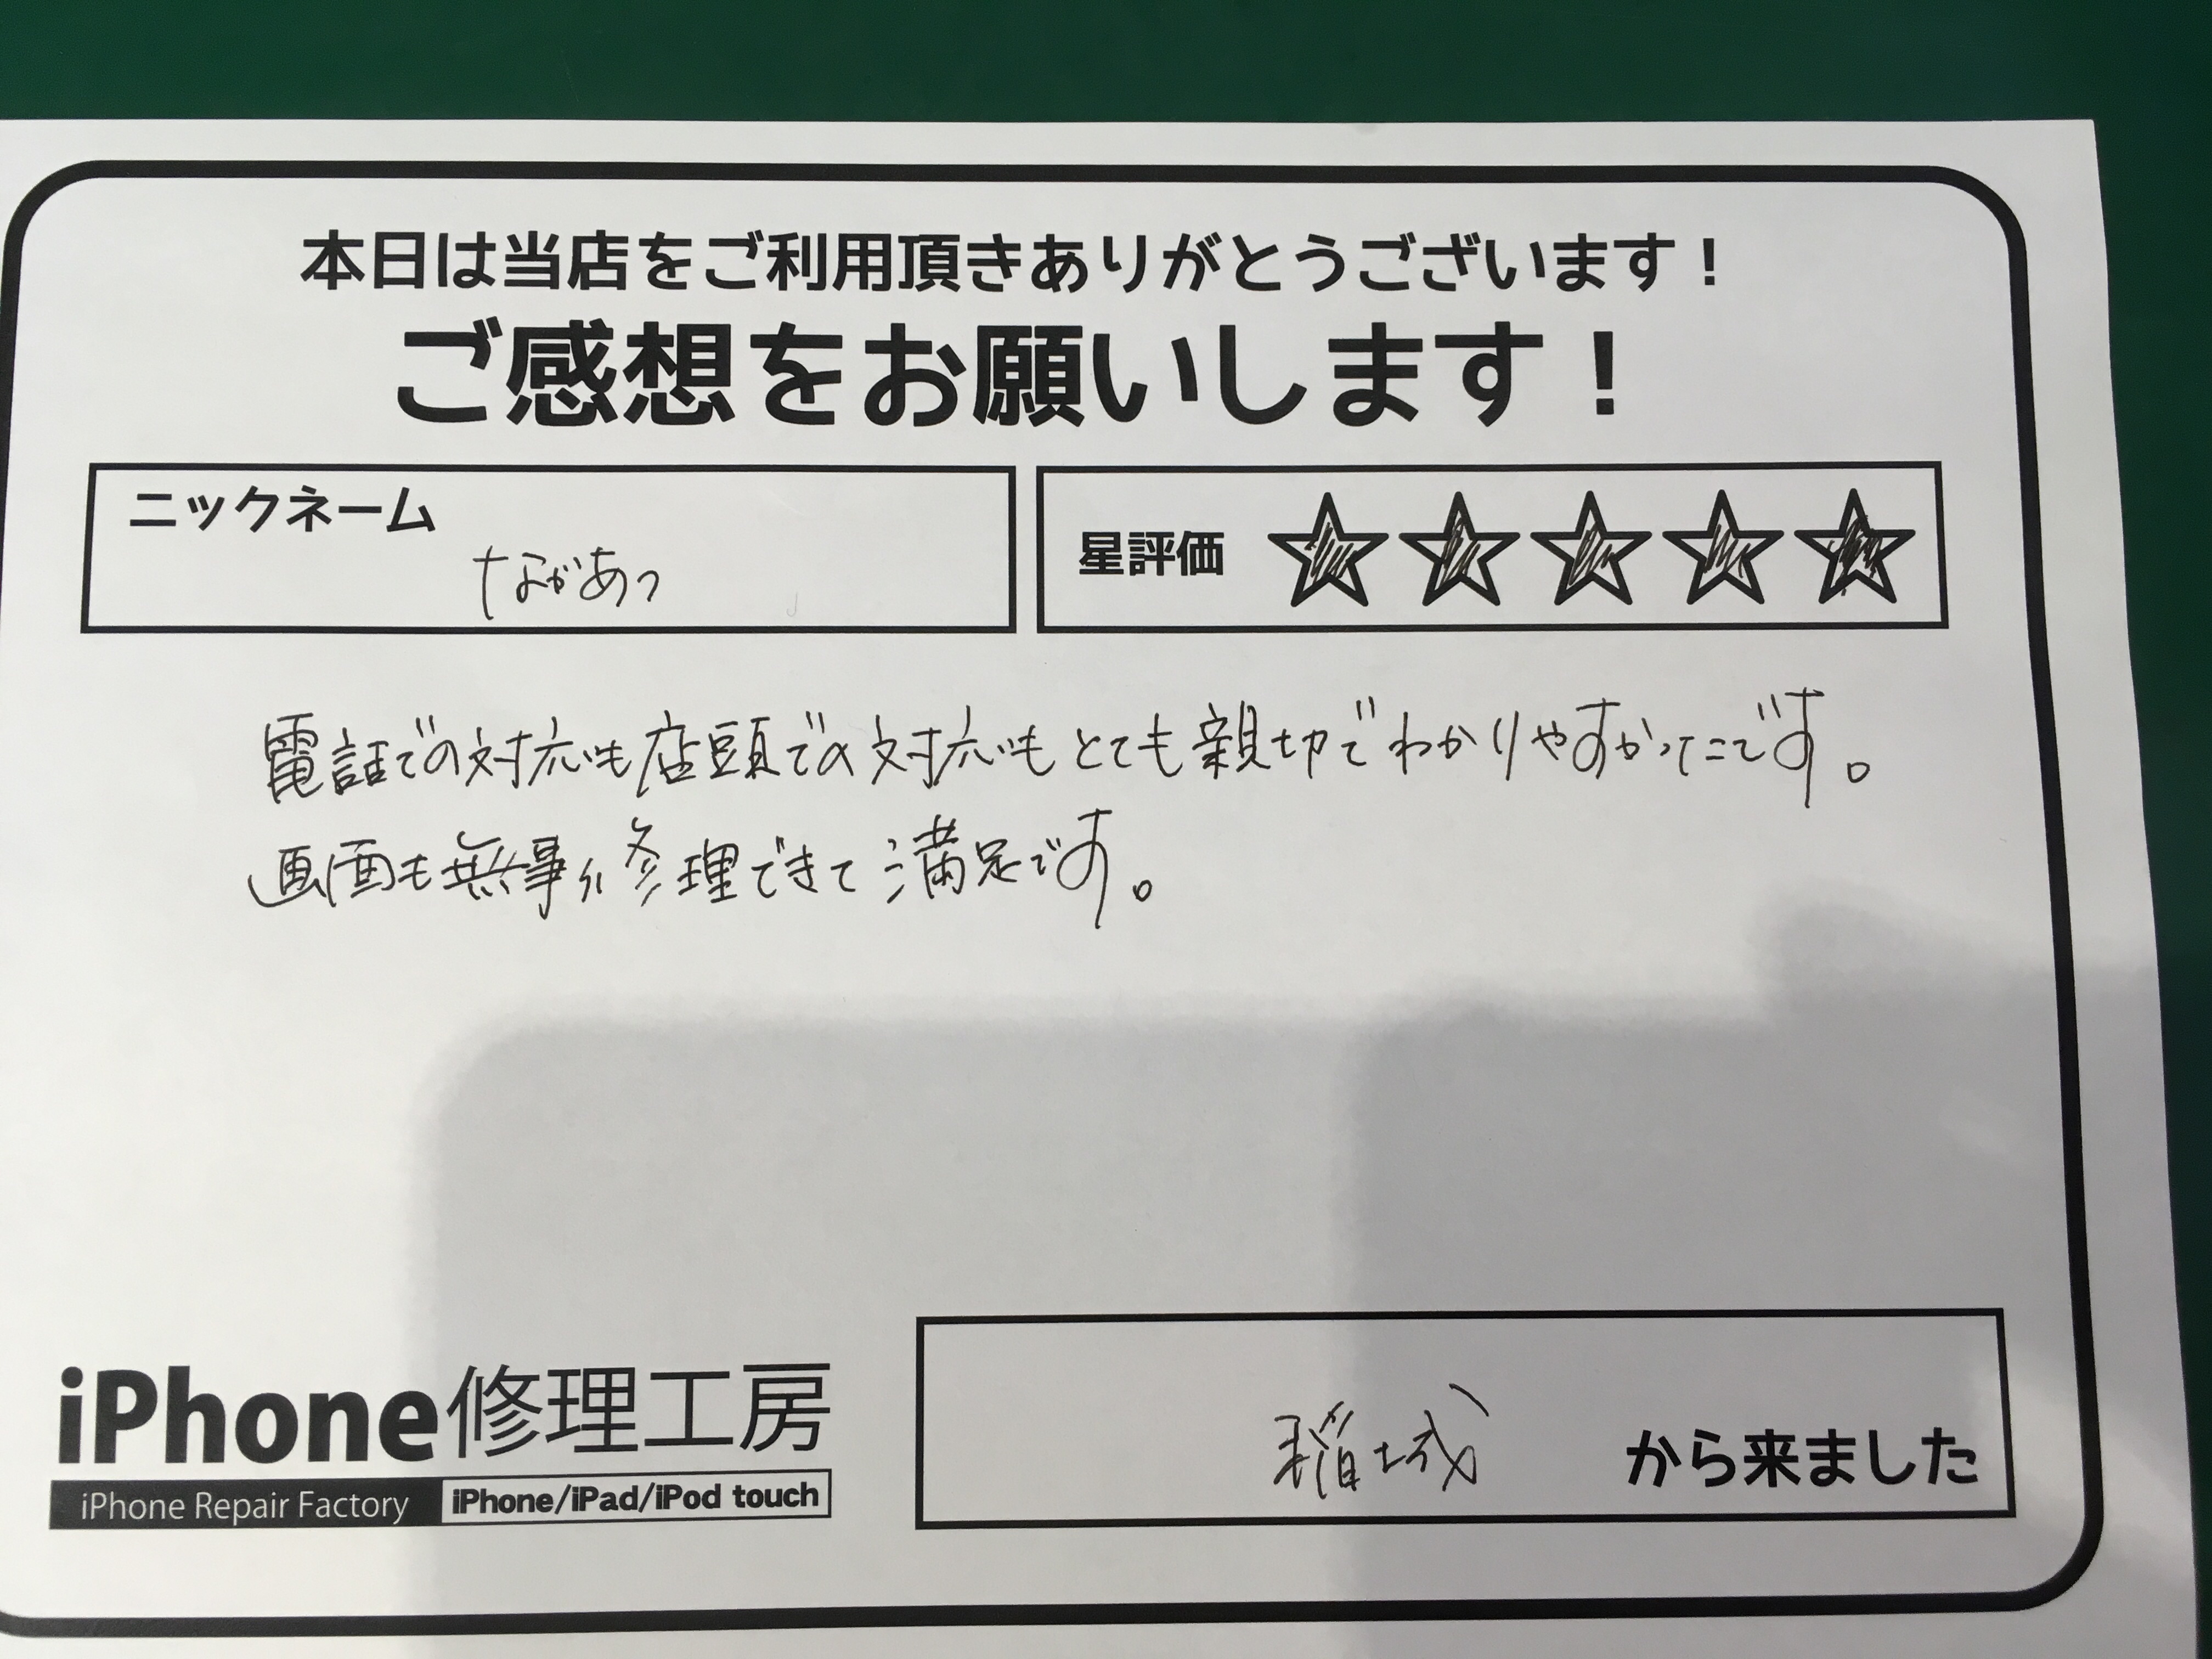 本日は当店をご利用頂きありがとうございます！
ご感想をお願いします！
ニックネーム
ながあつ
星評価
電話での対応も店頭での対応もとても親切でわかりやすかったです。
画面も無事に修理できて満足です。
iPhone修理工房
iPhone Repair Factory iPhone/iPad/iPod touch
稲城 から来ました